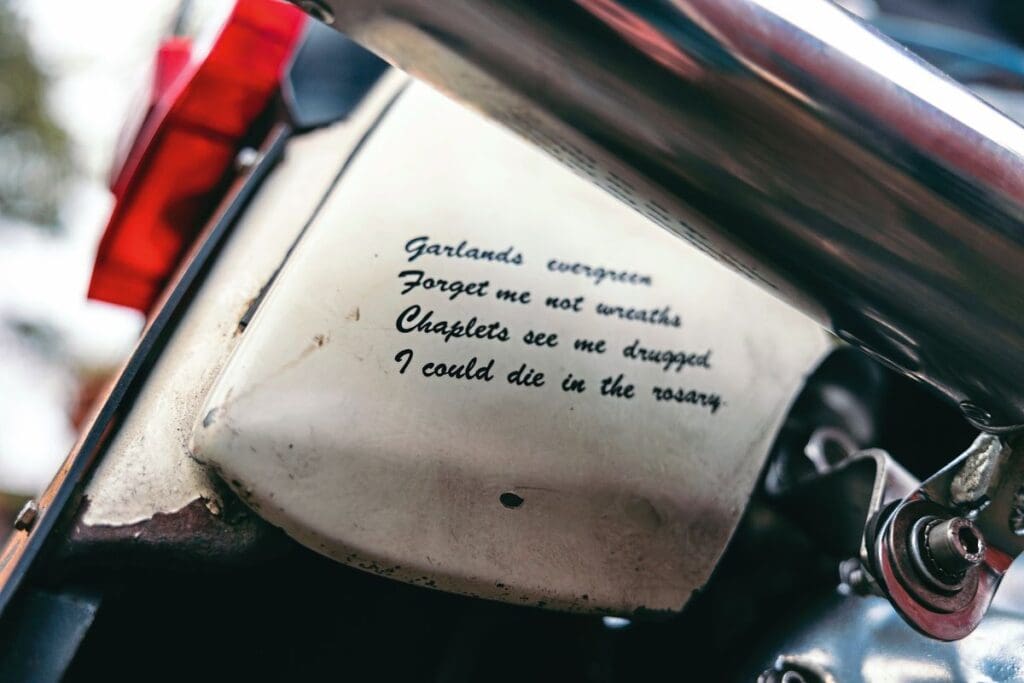 Garlands evergreen
Forget me not wreaths
Chaplets see me drugged
I could die in the rosary.